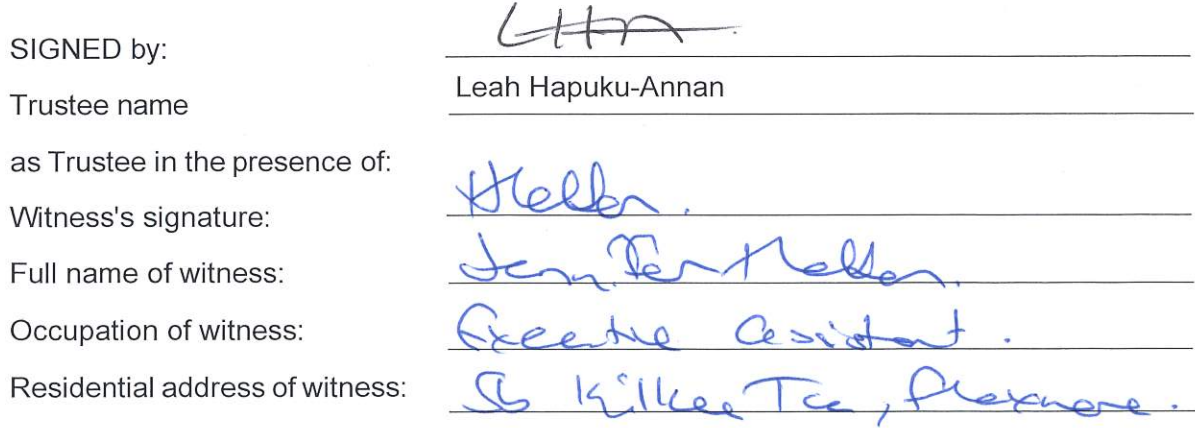 SIGNED by: LHA
Trustee name Leah Hapuku-Annan
as Trustee in the presence of:
Witness's signature:
Full name of witness: Jennifer
Occupation of witness: Executive assistant.
Residential address of witness: Kilkee Tce, Flaxmere.